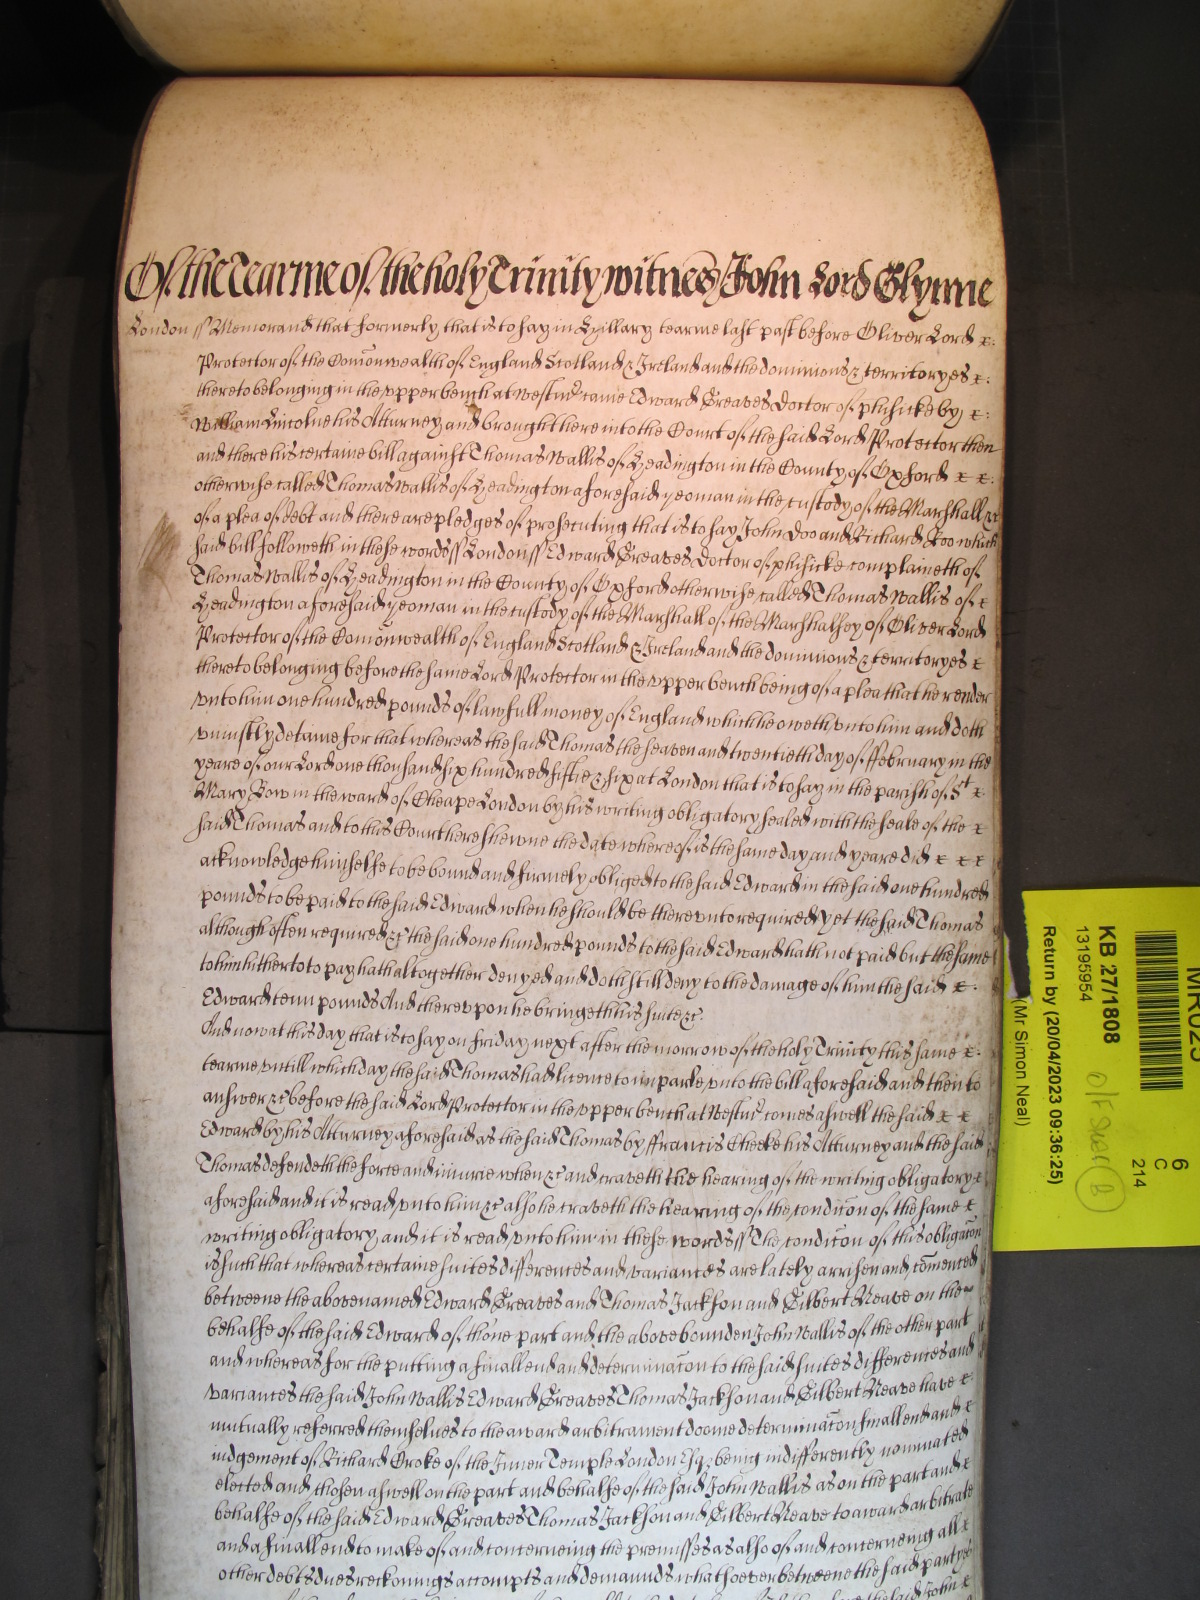 Of the Tearme of the holy Trinity witnes John Lord Glynne
London ss Memorand that formerly that is to say in Hillary tearme last past before Oliver Lord
Protector of the Comonwealth of England Scotland & Ireland and the dominions & territoryes
thereto belonging in the vpper bench at Westmr came Edward Greaves Doctor of phisicke by
William Lincolne his Atturney and brought here into the Court of the said Lord Protector then
and there his certaine bill against Thomas Wallis of Headington in the County of Oxford
otherwise called Thomas Wallis of Headington aforesaid yeoman in the custody of the Marshall &c
of a plea of debt and there are pledges of prosecuting that is to say John Doo and Richard Roo which
said bill followeth in these words ss London ss Edward Greaves Doctor of phisicke complaineth of
Thomas Wallis of Headington in the County of Oxford otherwise called Thomas Wallis of
Headington aforesaid yeoman in the custody of the Marshall of the Marshalsey of Oliver Lord
Protector of the Comonwealth of England Scotland & Ireland and the dominions & territoryes
thereto belonging before the same Lord Protector in the vpper bench being of a plea that he render
vnto him one hundred pounds of lawfull money of England which he oweth vnto him and doth
vniustly detaine for that whereas the said Thomas the seaven and twentieth day of ffebruary in the
yeare of our Lord one thousand six hundred fiftie & six at London that is to say in the parish of St
Mary Bow in the ward of Cheape London by his writing obligatory sealed with the seale of the
said Thomas and to this Court here shewne the date whereof is the same day and yeare did
acknowledge himselfe to be bound and firmely obliged to the said Edward in the said one hundred
pounds to be paid to the said Edward when he should be therevnto required yet the said Thomas
although often required &c the said one hundred pounds to the said Edward hath not paid but the same
to him hitherto to pay hath altogether denyed and doth still deny to the damage of him the said
Edward tenn pounds And therevpon he bringeth his suite &c
And now at this day that is to say on friday next after the morrow of the holy Trinity this same
tearme vntill which day the said Thomas had licence to imparle vnto the bill aforesaid and then to
answer &c before the said Lord Protector in the vpper bench at Westmr comes aswell the said
Edward by his Atturney aforesaid as the said Thomas by ffrancis Cheeke his Atturney and the said
Thomas defendeth the force and iniurie when &c and craveth the hearing of the writing obligatory
aforesaid and it is read vnto him &c also he craveth the hearing of the condicon of the same
writing obligatory and it is read vnto him in these words ss The condicon of this obligacon
is such that whereas certaine suites differences and variances are lately arrisen and comenced
betweene the abovenamed Edward Greaves and Thomas Jackson and Gilbert Neave on the
behalfe of the said Edward of thone part and the above bounden John Wallis of the other part
and whereas for the putting a finall end and determinacon to the said suites differences and
variances the said John Wallis Edward Greaves Thomas Jackson and Gilbert Neave have
mutually referred themselves to the award arbitrament doome determinacon finall end and
iudgement of Richard Croke of the Inner Temple London Esqr being indifferently nominated
elected and chosen aswell on the part and behalfe of the said John Wallis as on the part and
behalfe of the said Edward Greaves Thomas Jackson and Gilbert Neave to award arbitrate
and a finall end to make of and concerneing the premisses as also of and concerneing all
other debts dues reckonings accompts and demaunds whatsoever betweene the said partyes
the said John
MR025
KB 27/1808
13195954
Return by (20/04/2023 09:36:25)
(Mr Simon Neal)
6
C
214
B